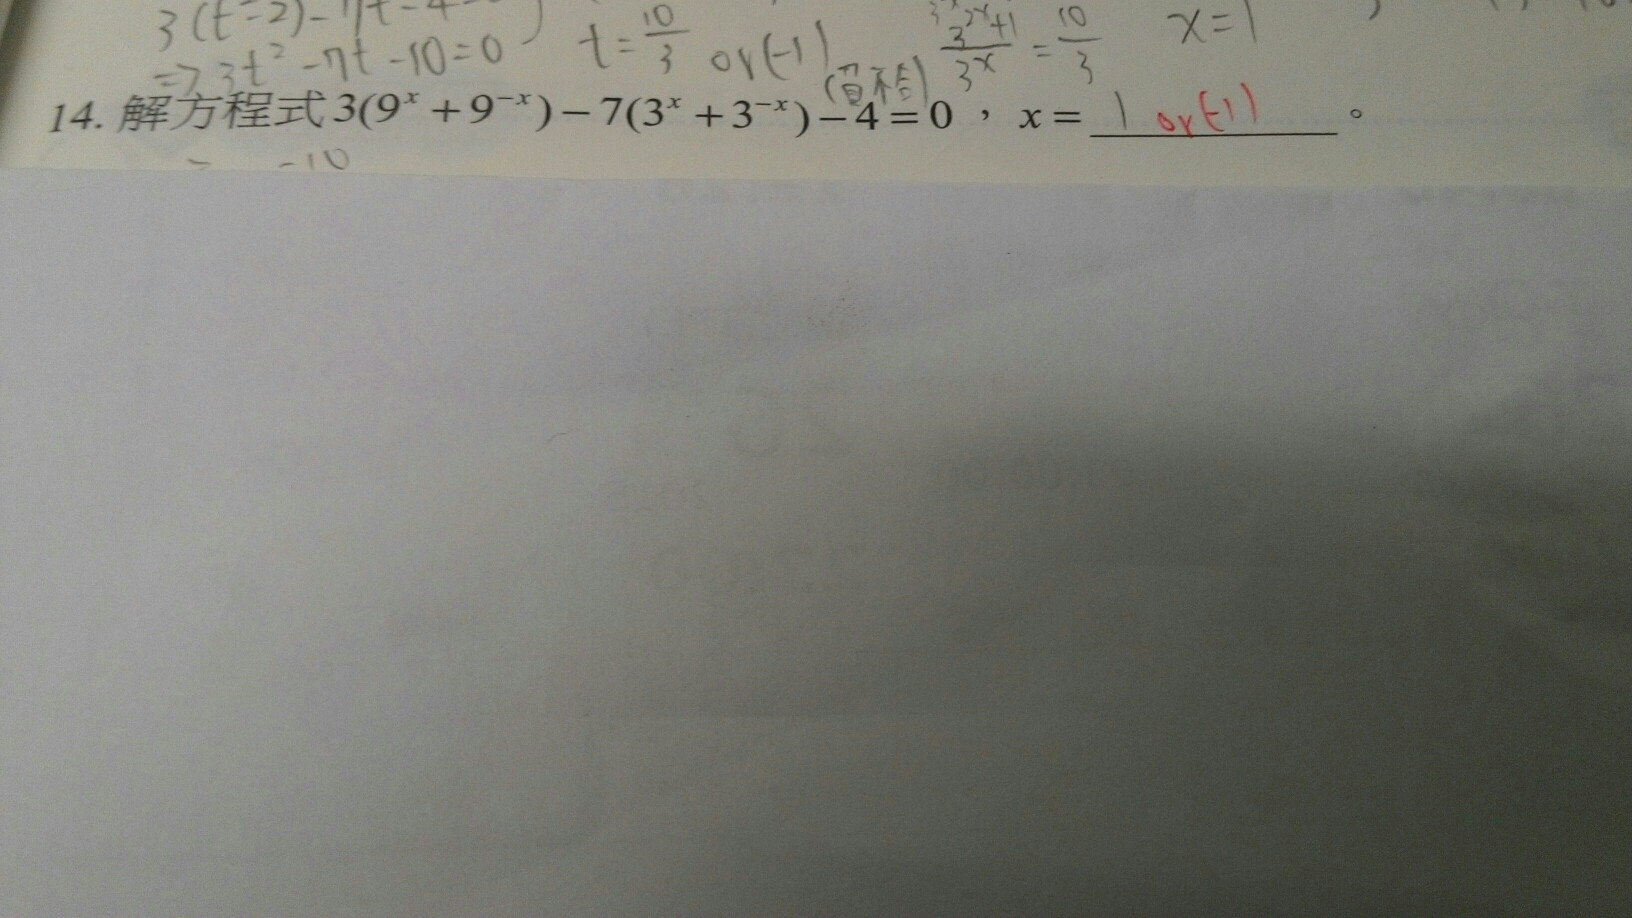 3(t²-2)-7t-4
=> 3t²-7t-10=0
t=10/3 or(-1)
(負不合)
3^2x+1/3^x = 10/3
x=1
14. 解方程式3(9^x+9^-x)-7(3^x+3^-x)-4=0，x=1 or(-1)。
-10